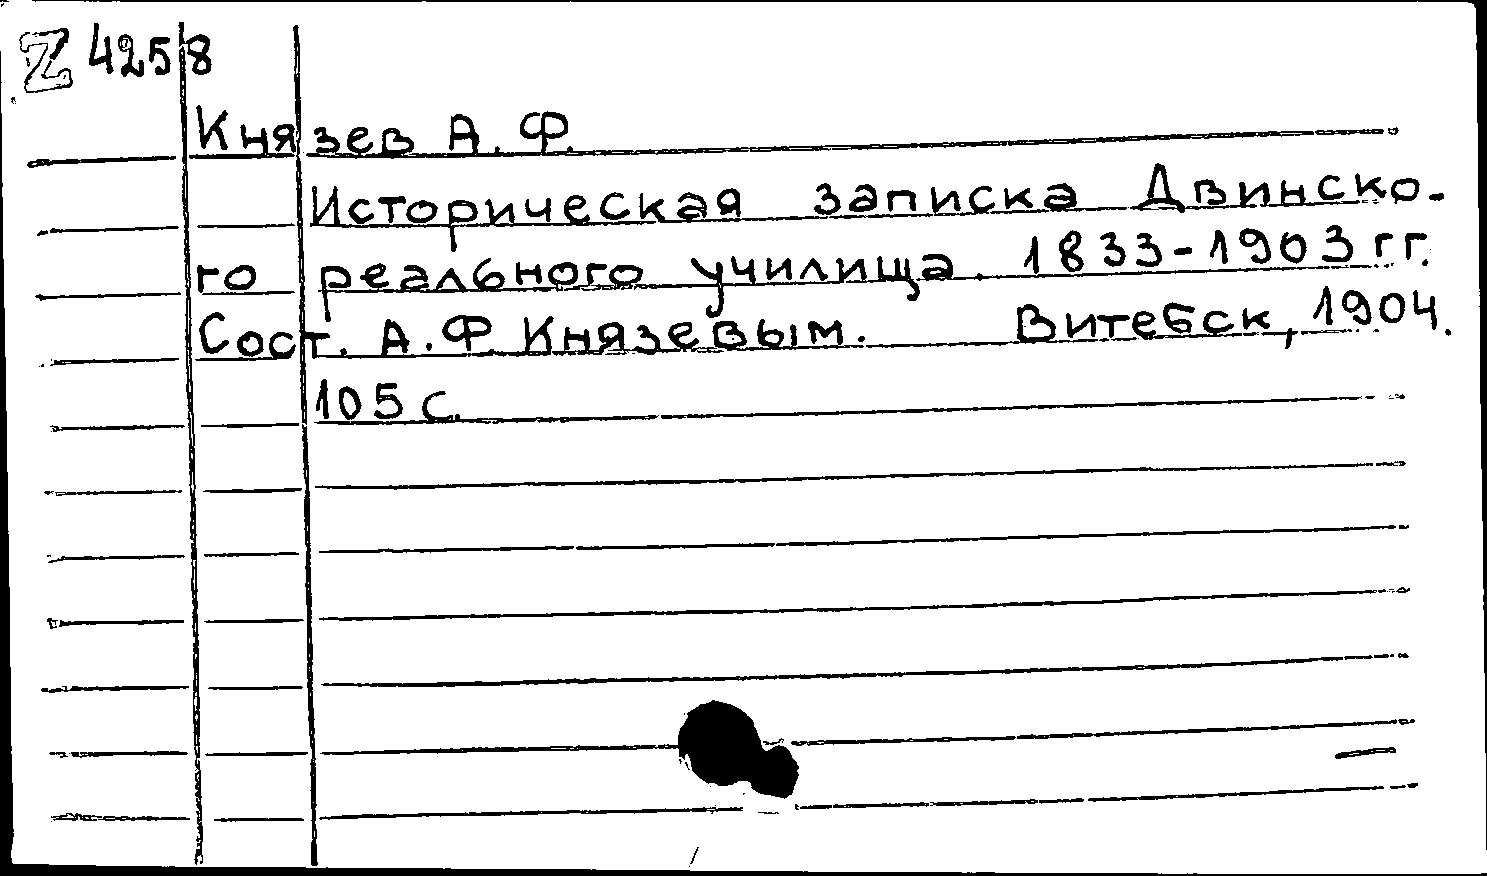 Z 4258
Князев А. Ф.
Историческая записка Двинско-
го реального училища. 1833-1903 гг.
Сост. А. Ф. Князевым. Витебск, 1904.
105 с.